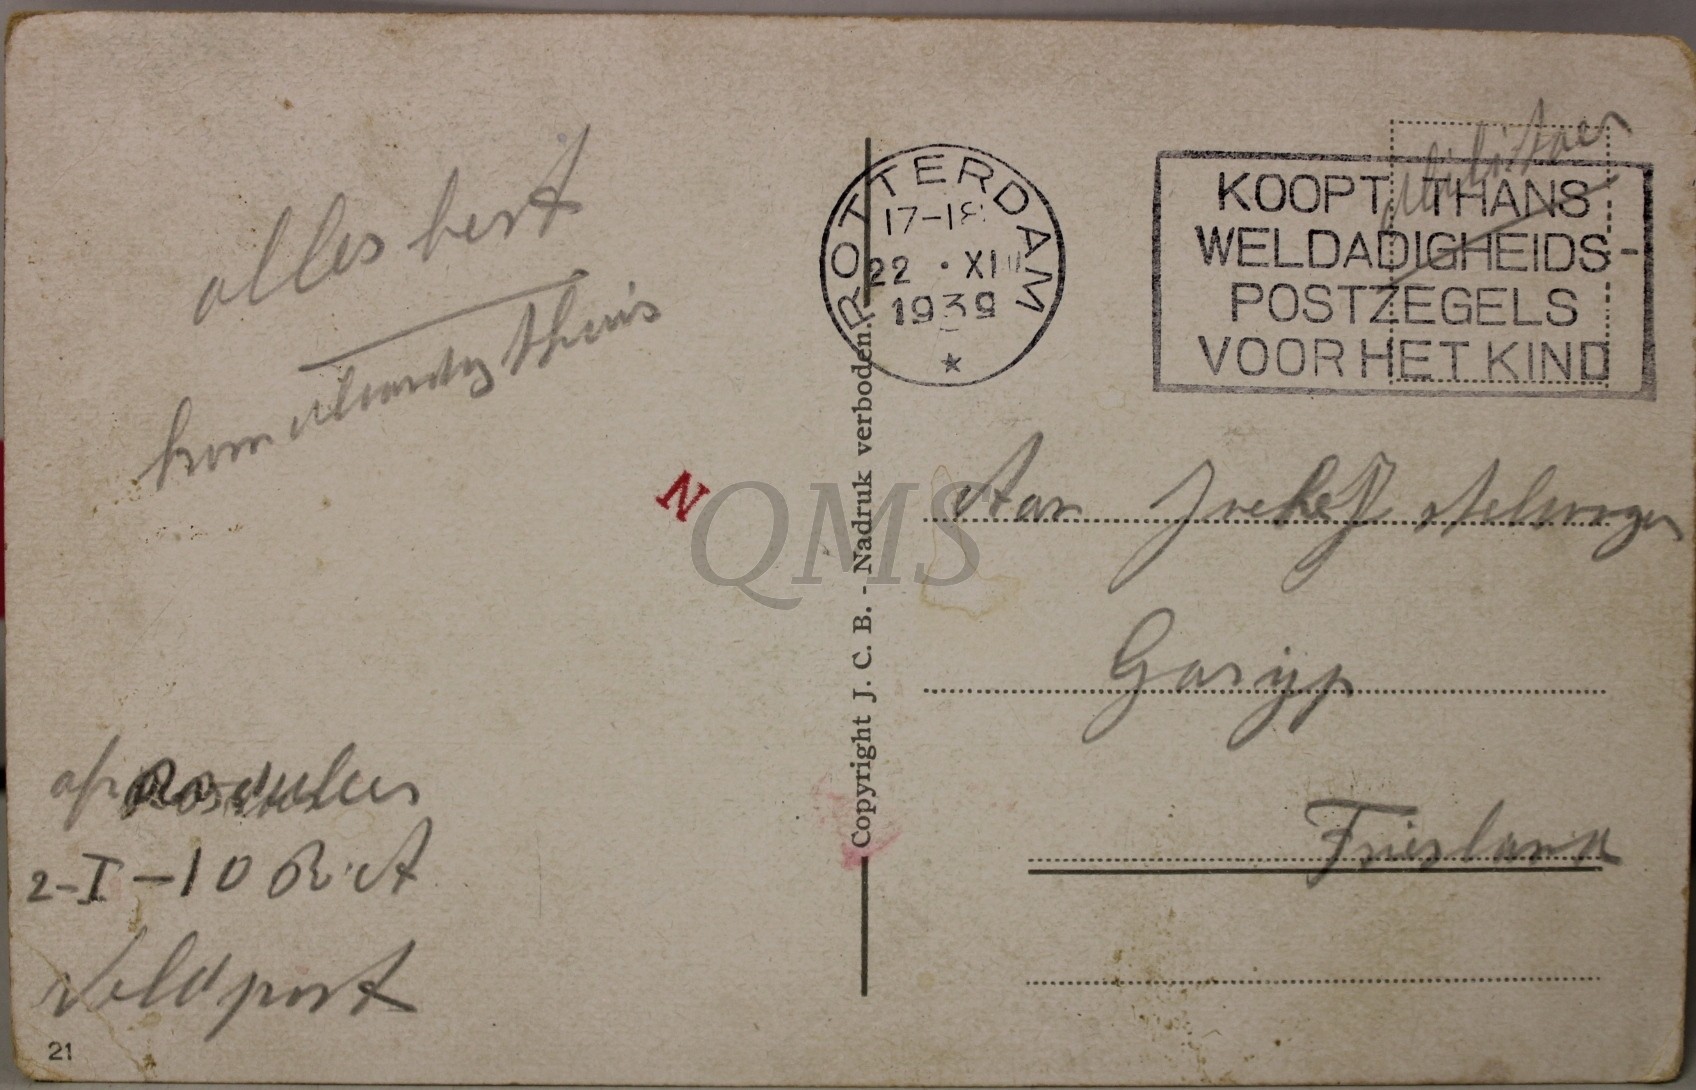 alles best
kom maandag thuis
afz
2-I-10 R.A
Veldpost
21
N
QMS
Copyright J. C. B. - Nadruk verboden.
ROTTERDAM
17-18
22 · XI
1939
Militair
KOOPT THANS
WELDADIGHEIDS-
POSTZEGELS
VOOR HET KIND
Aan
Garijp
Friesland